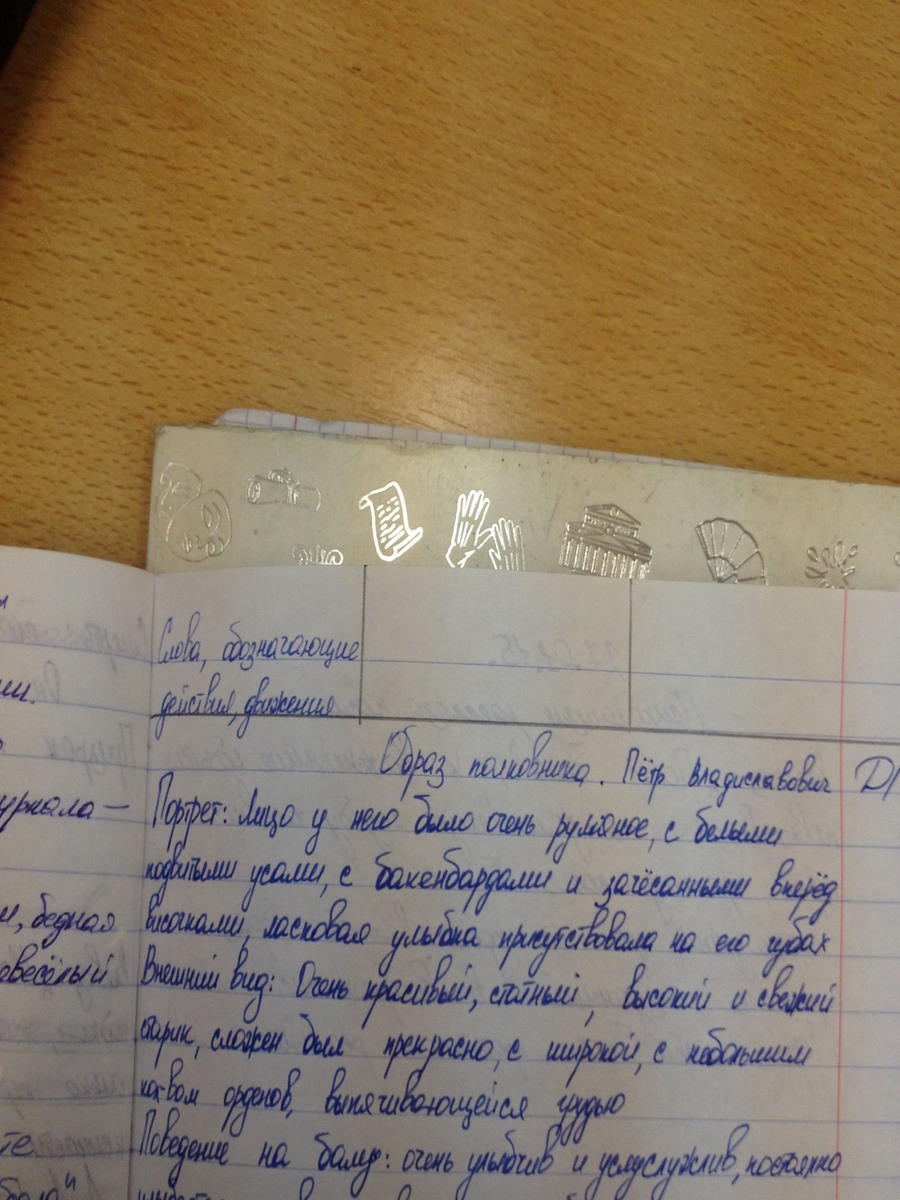 Слова, обозначающие
действия, движения
Образ полковника. Пётр Владиславович
Портрет: Лицо у него было очень румяное, с белыми
подвитыми усами, с бакенбардами и зачёсанными вперёд
височками, ласковая улыбка присутствовала на его губах
Внешний вид: Очень красивый, статный, высокий и свежий
старик, сложен был прекрасно, с широкой, с небольшим
кол-вом орденов, выпячивающейся грудью
Поведение на балу: очень улыбчив и услуслужлив, постоянно
урнала —
и, бедная
овесёлый
те
бала"